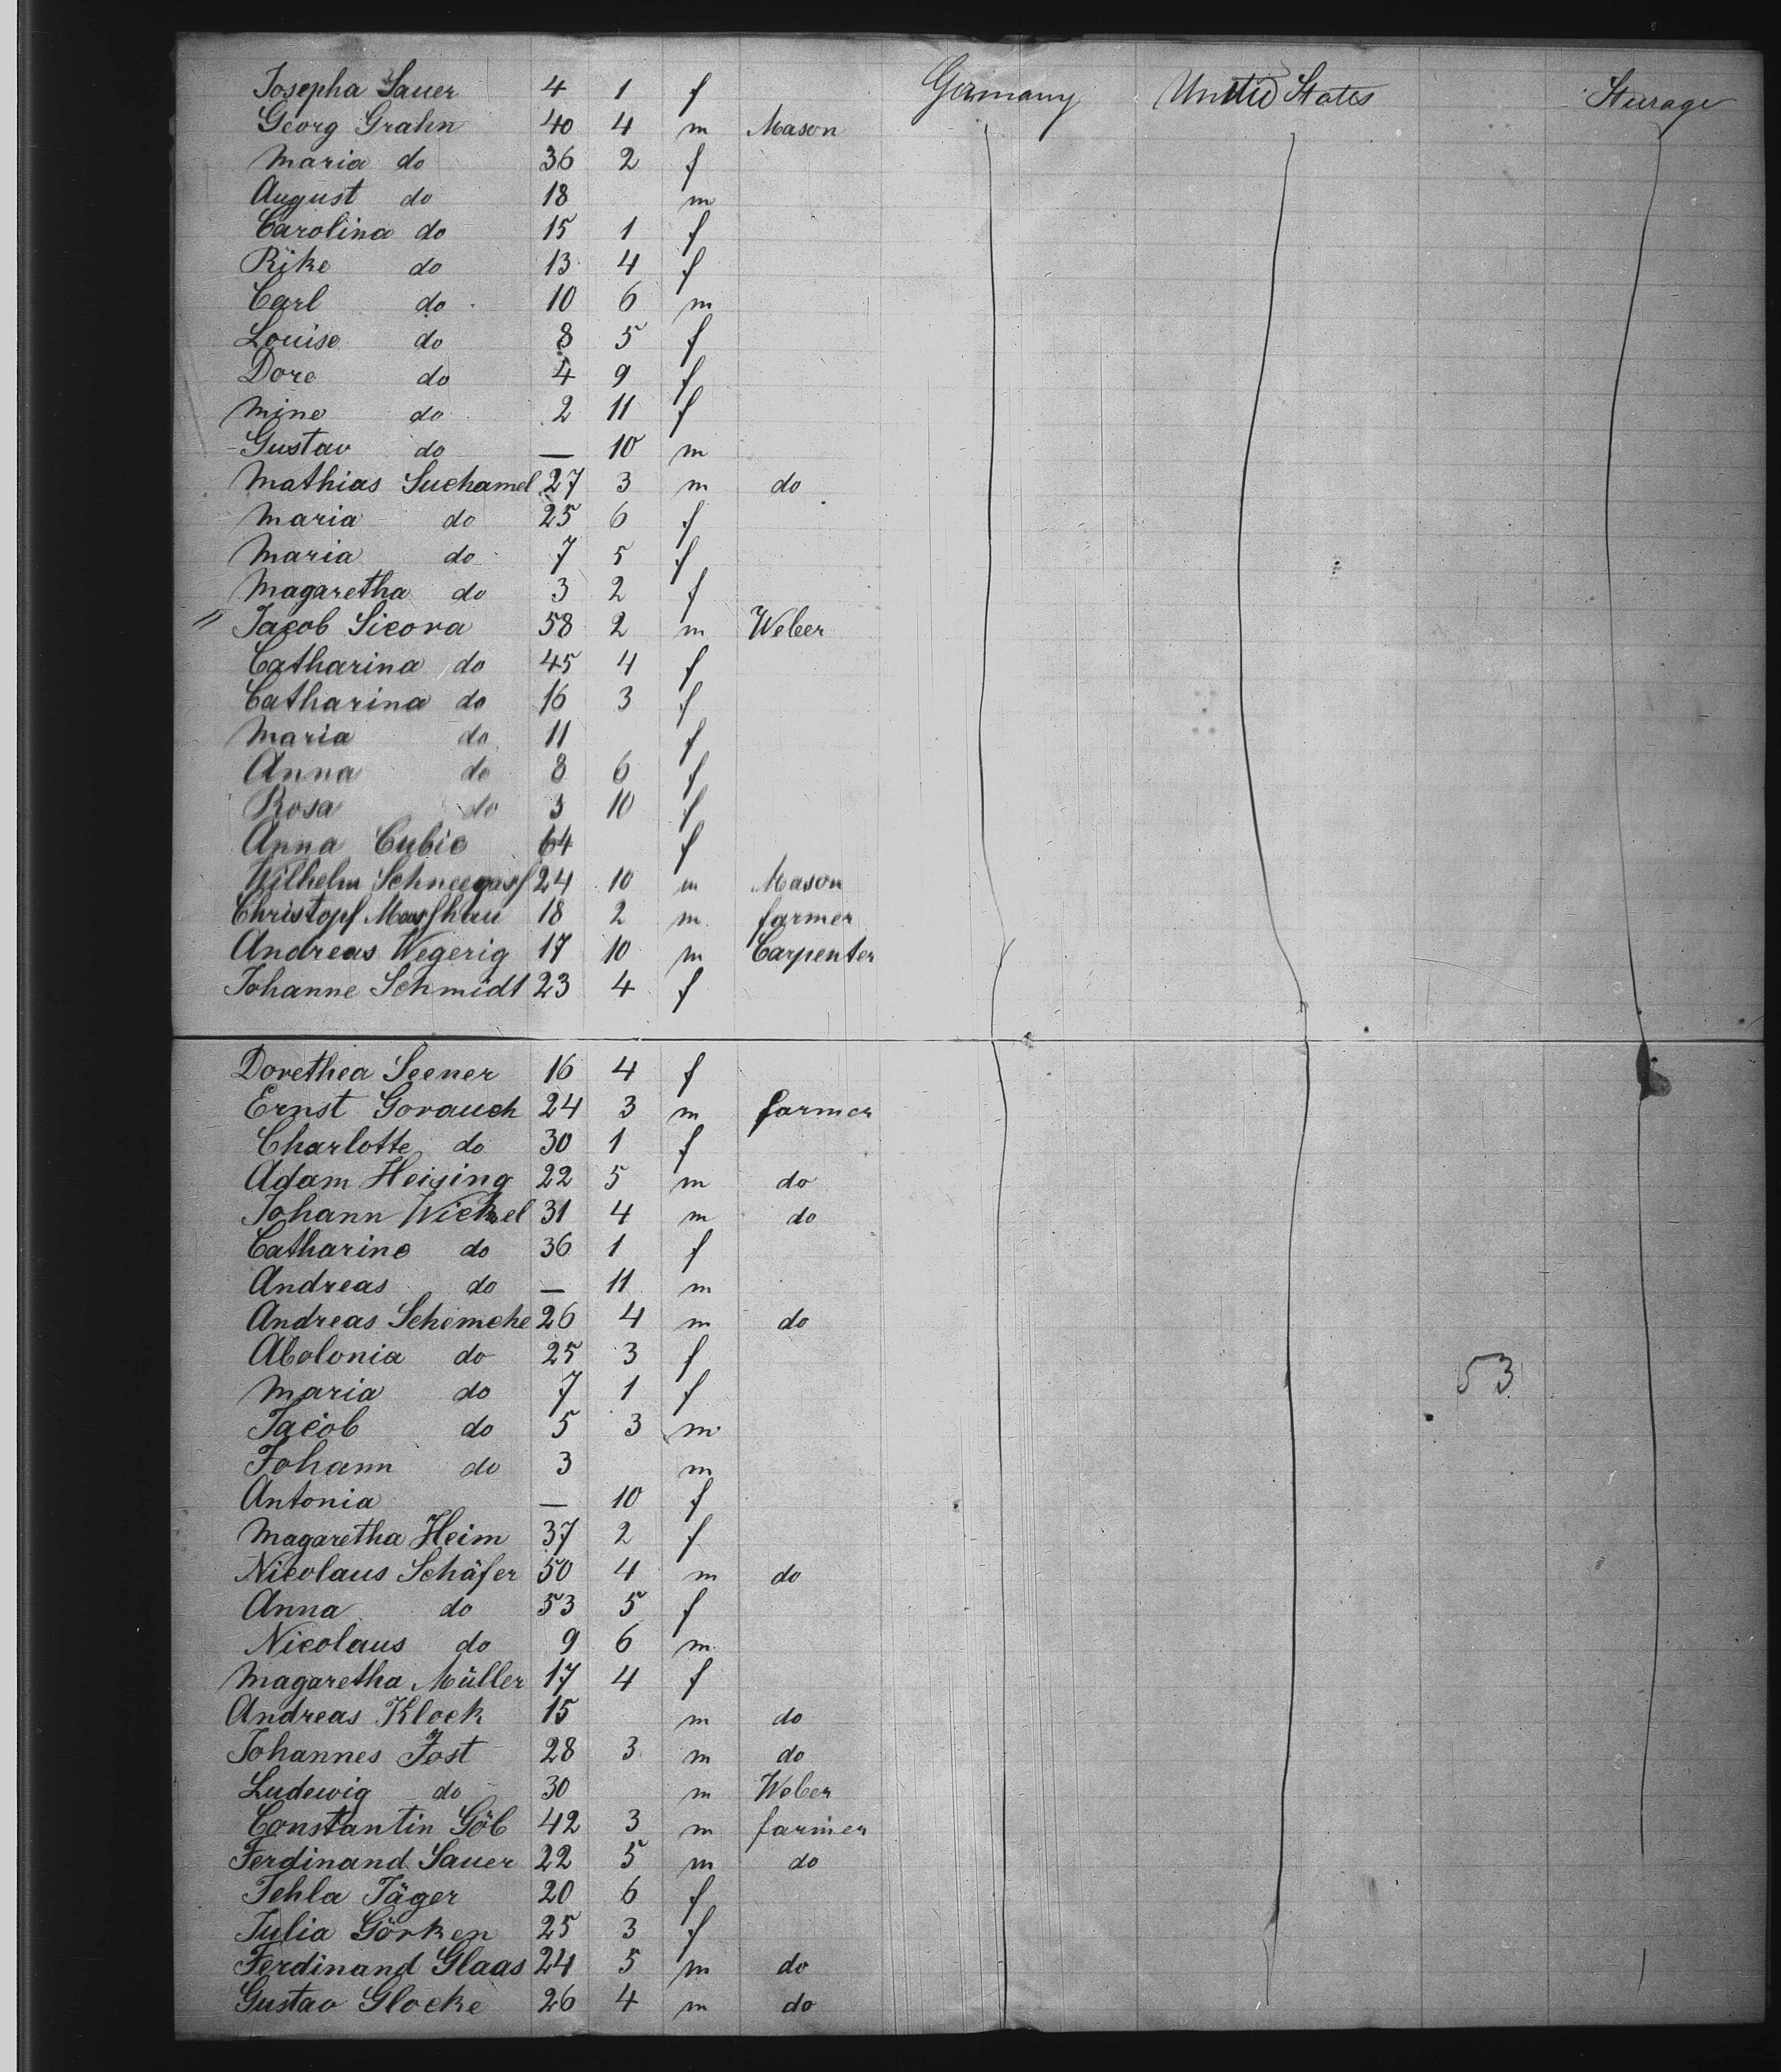 Josepha Sauer 4 1 f Germany United States Steerage
Georg Grahn 40 4 m Mason
Maria do 36 2 f
August do 18 m
Carolina do 15 1 f
Rike do 13 4 f
Carl do 10 6 m
Louise do 8 5 f
Dore do 4 9 f
Mine do 2 11 f
Gustav do — 10 m
Mathias Suchamel 27 3 m do
Maria do 25 6 f
Maria do 7 5 f
Magaretha do 3 2 f
" Jacob Sicora 58 2 m Weber
Catharina do 45 4 f
Catharina do 16 3 f
Maria do 11 f
Anna do 8 6 f
Rosa do 3 10 f
Anna Cubic 64 f
Wilhelm Schneegass 24 10 m Mason
Christopf 18 2 m farmer
Andreas Wegerig 17 10 m Carpenter
Johanne Schmidt 23 4 f
Dorethea Seener 16 4 f
Ernst Gorauch 24 3 m farmer
Charlotte do 30 1 f
Adam Heising 22 5 m do
Johann Wickel 31 4 m do
Catharine do 36 1 f
Andreas do — 11 m
Andreas Schemche 26 4 m do
Abolonia do 25 3 f
Maria do 7 1 f 53
Jacob do 5 3 m
Johann do 3 m
Antonia — 10 f
Magaretha Heim 37 2 f
Nicolaus Schäfer 50 4 m do
Anna do 53 5 f
Nicolaus do 9 6 m
Magaretha Müller 17 4 f
Andreas Klock 15 m do
Johannes Jost 28 3 m do
Ludewig do 30 m Weber
Constantin Göb 42 3 m farmer
Ferdinand Sauer 22 5 m do
Tehla Jäger 20 6 f
Julia Görken 25 3 f
Ferdinand Glaas 24 5 m do
Gustav Glocke 26 4 m do